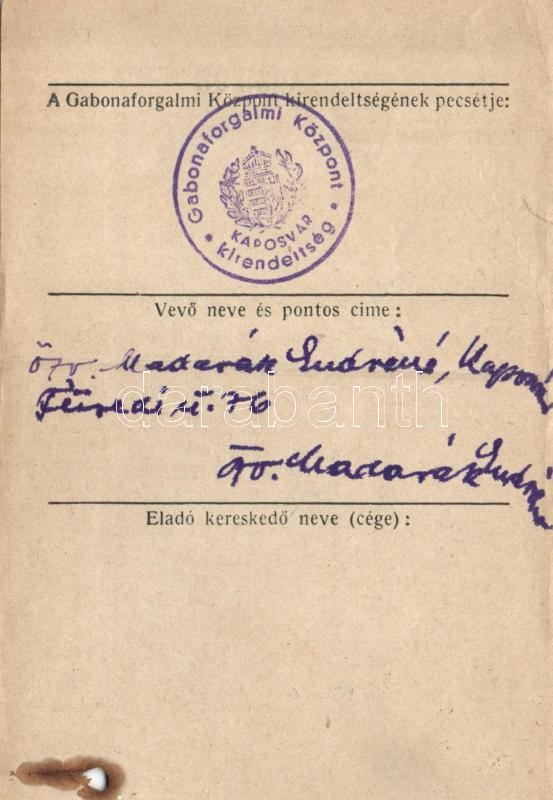 A Gabonaforgalmi Központ kirendeltségének pecsétje:
Gabonaforgalmi Központ
KAPOSVÁR
kirendeltség
Vevő neve és pontos cime:
özv. Madarák Endréné, Kaposvár
Füredi u. 76
darabanth
özv. Madarák Endréné
Eladó kereskedő neve (cége):